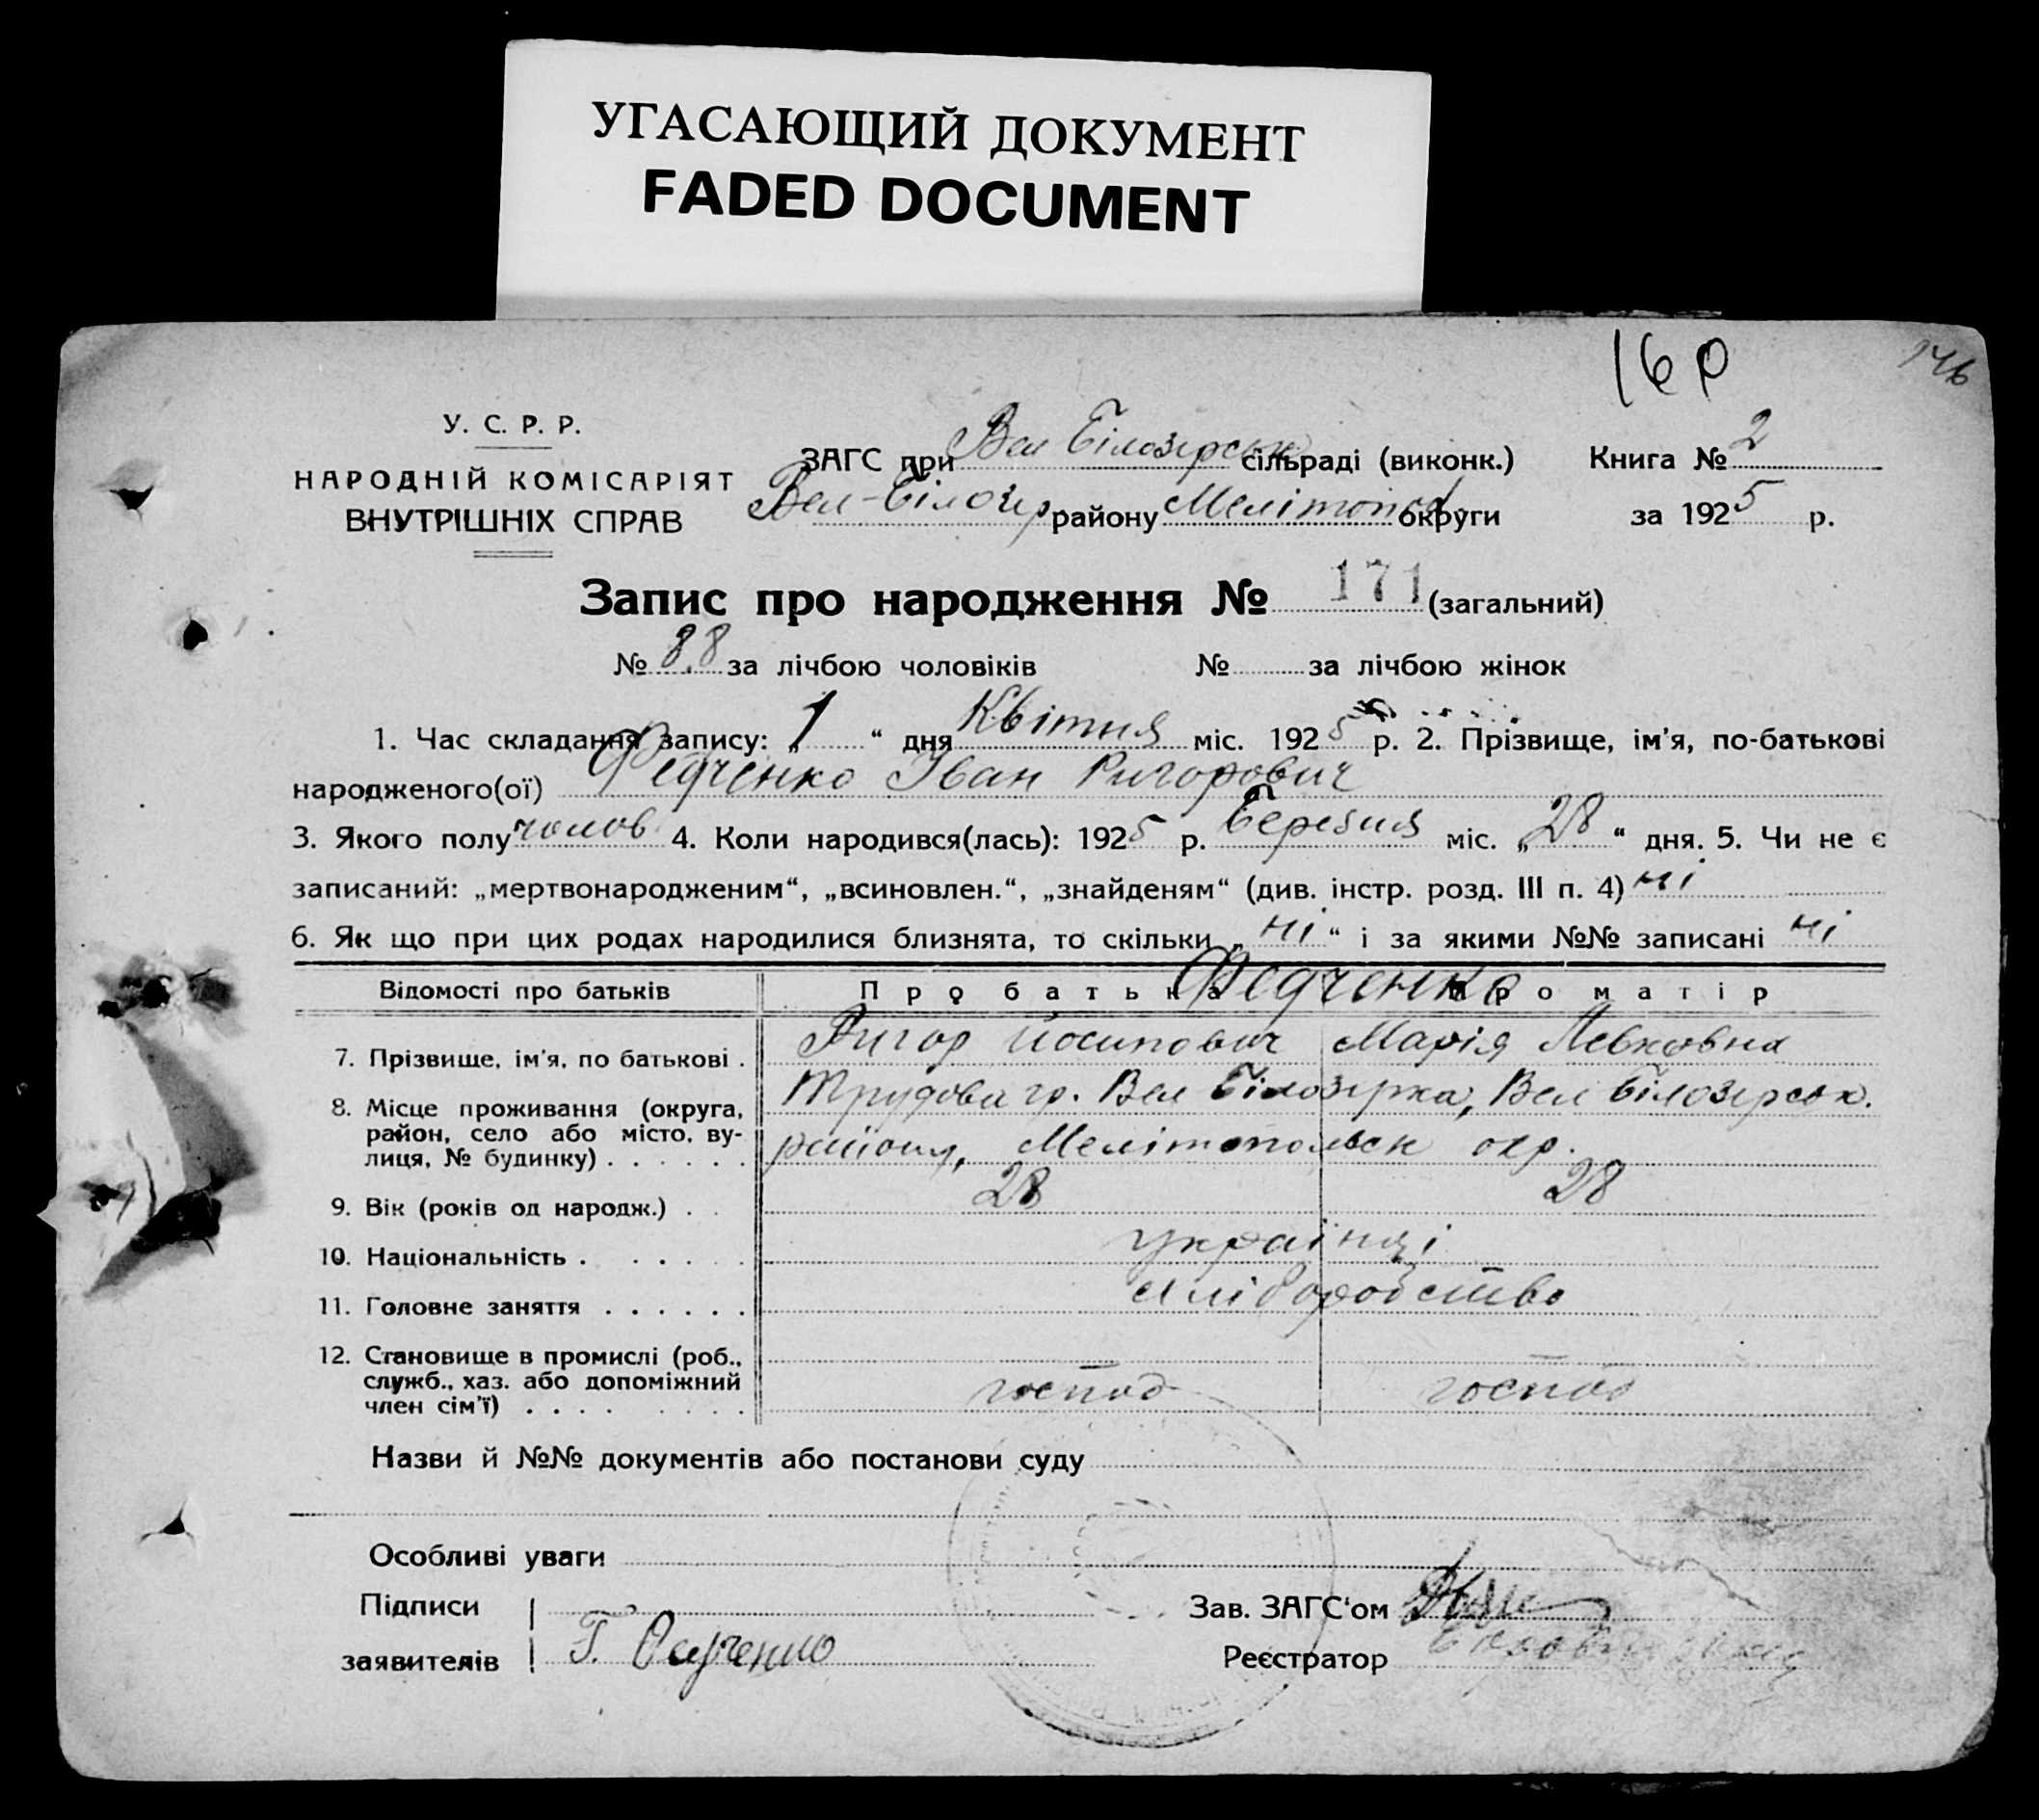 УГАСАЮЩИЙ ДОКУМЕНТ
FADED DOCUMENT
160
146
У. С. Р. Р.
НАРОДНІЙ КОМІСАРІЯТ
ВНУТРІШНІХ СПРАВ
ЗАГС при Вел Білозерськ сільраді (виконк.)
Вел-Білозер. району Мелітоп округи
Книга № 2
за 1925 р.
Запис про народження № 171 (загальний)
№ 88 за лічбою чоловіків № за лічбою жінок
1. Час складання запису: „1“ дня Квітня міс. 1925 р. 2. Прізвище, ім'я, по-батькові
народженого(ої) Федченко Іван Ригорович
3. Якого полу чолов. 4. Коли народився(лась): 1925 р. Березня міс. „28“ дня. 5. Чи не є
записаний: „мертвонародженим“, „всиновлен.“, „знайденям“ (див. інстр. розд. III п. 4) ні
6. Як що при цих родах народилися близнята, то скільки „ні“ і за якими №№ записані ні
Відомості про батьків Про батька Про матір
Федченко
7. Прізвище, ім'я, по батькові . Ригор Йосипович Марія Левковна
8. Місце проживання (округа, Трудова гр. Вел Білозерка, Вел Білозерськ.
район, село або місто, ву-
лиця, № будинку) . . . . . . району, Мелітопольск окр.
9. Вік (років од народж.) . . 28 28
10. Національність . . . . . українці
11. Головне заняття . . . . . . хліборобство
12. Становище в промислі (роб.,
служб., хаз. або допоміжний
член сім'ї) . . . . . . . . господ господ
Назви й №№ документів або постанови суду
Особливі уваги
Підписи
заявителів Г. Федченко
Зав. ЗАГС'ом
Реєстратор